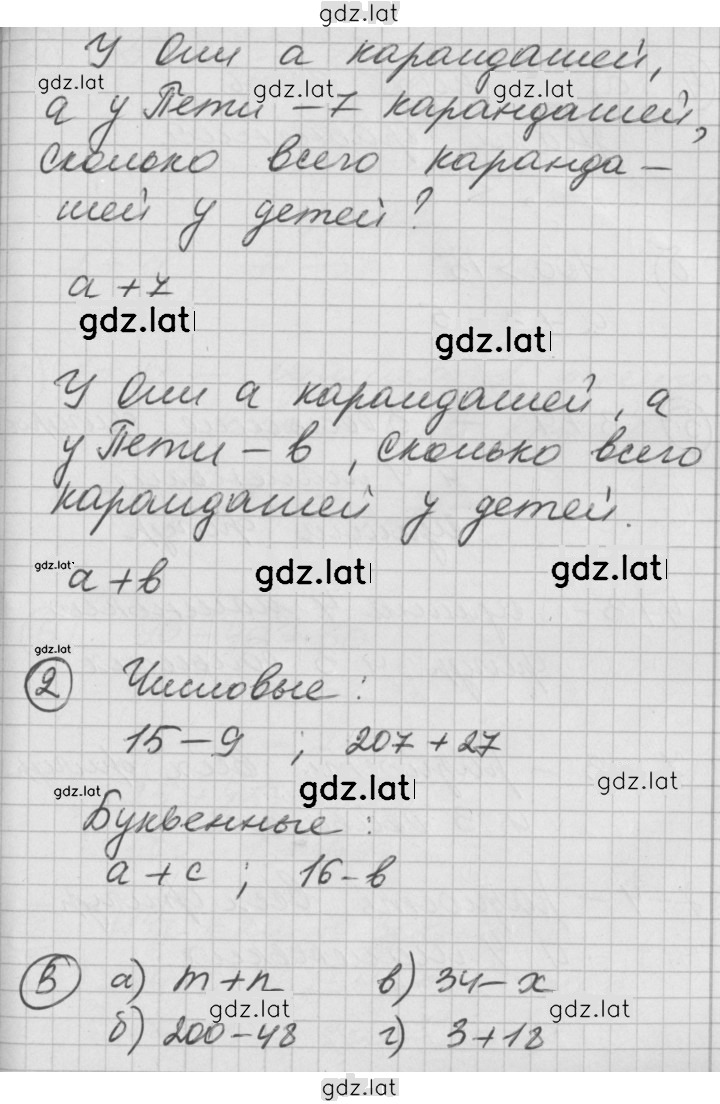 gdz.lat
У Оли а карандашей,
gdz.lat gdz.lat gdz.lat
а у Пети – 7 карандашей,
сколько всего каранда-
шей у детей?
а + 7
gdz.lat gdz.lat
У Оли а карандашей, а
у Пети – в, сколько всего
карандашей у детей.
gdz.lat gdz.lat gdz.lat
а + в
gdz.lat
2 Числовые:
15 – 9 ; 207 + 27
gdz.lat gdz.lat gdz.lat
Буквенные:
а + с ; 16 - в
5 а) m + n в) 34 – x
gdz.lat gdz.lat
б) 200 – 48 г) 3 + 18
gdz.lat